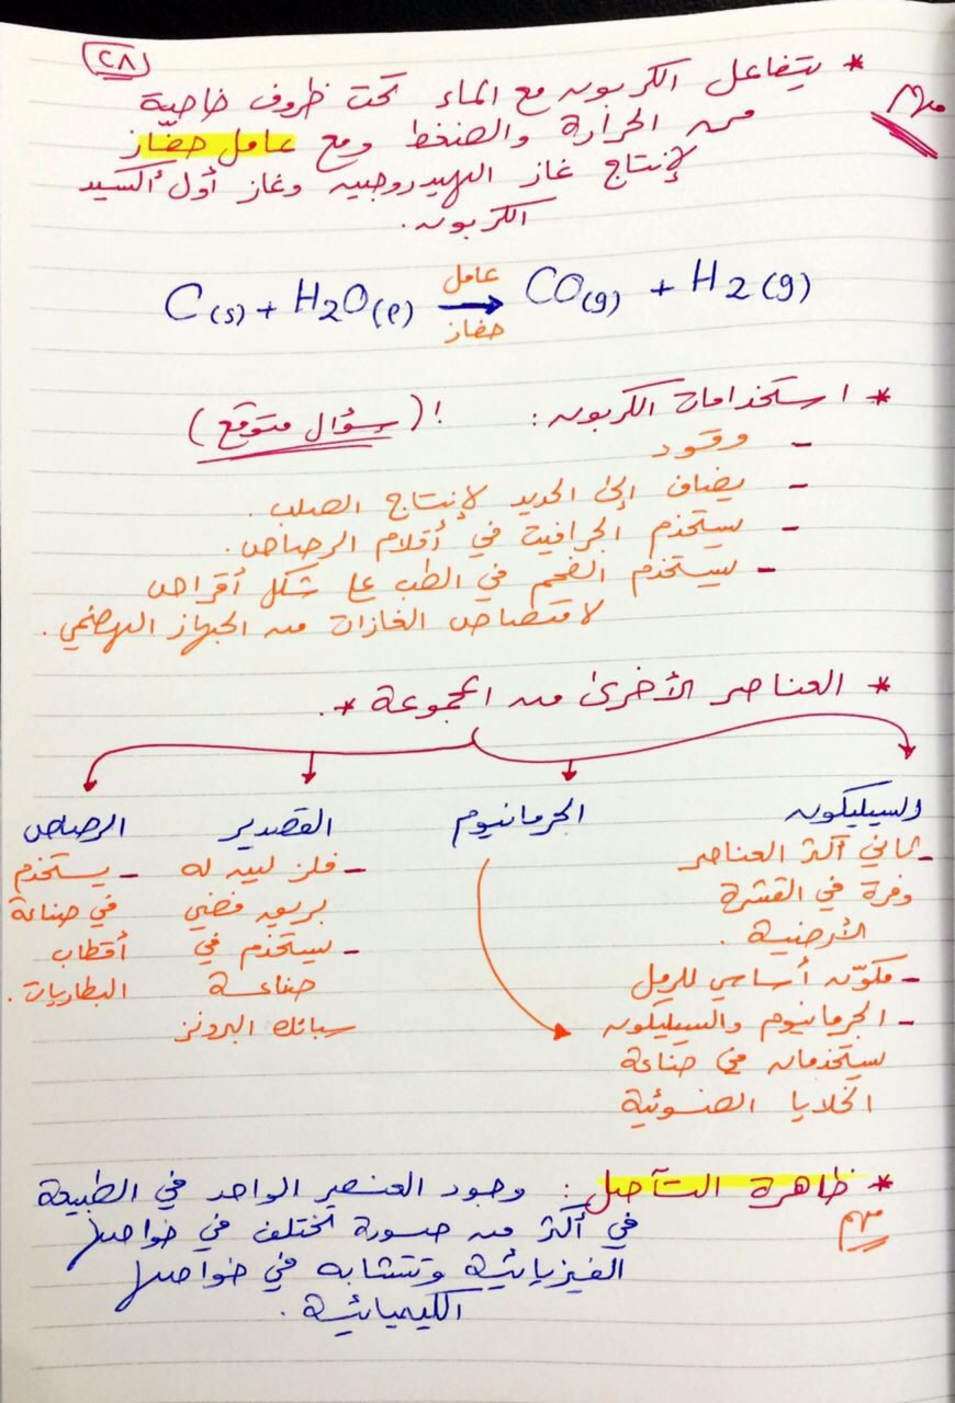 ٢٨
* يتفاعل الكربون مع الماء تحت ظروف خاصة
مهم
من الحرارة والضغط ومع عامل حفّاز
لإنتاج غاز الهيدروجين وغاز أول أكسيد
الكربون.
C(s) + H2O(l) عامل حفاز → CO(g) + H2(g)
* استخدامات الكربون : ! (سؤال متوقع)
- وقود
- يضاف إلى الحديد لإنتاج الصلب.
- يستخدم الجرافيت في أقلام الرصاص.
- يستخدم الفحم في الطب على شكل أقراص
لامتصاص الغازات من الجهاز الهضمي.
* العناصر الأخرى من المجموعة *.
السيليكون
- ثاني أكثر العناصر
وفرة في القشرة
الأرضية.
- مكوّن أساسي للرمل
- الجرمانيوم والسيليكون
يستخدمان في صناعة
الخلايا الضوئية
الجرمانيوم
القصدير
- فلز لين له
بريق فضي
- يستخدم في
صناعة
سبائك البرونز
الرصاص
- يستخدم
في صناعة
أقطاب
البطاريات.
* ظاهرة التآصل : وجود العنصر الواحد في الطبيعة
مهم
في أكثر من صورة تختلف في خواصها
الفيزيائية وتتشابه في خواصها
الكيميائية.